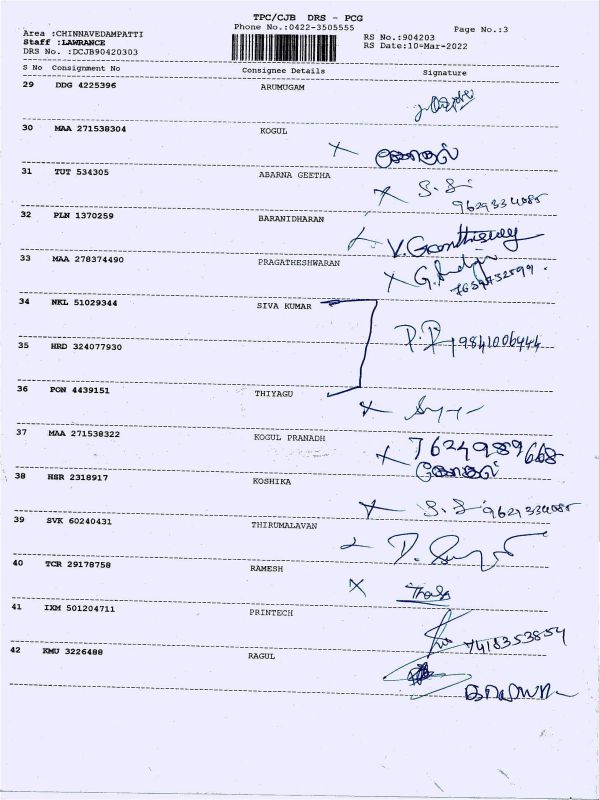 TPC/CJB DRS - PCG
Phone No.:0422-3505555
Page No.:3
Area :CHINNAVEDAMPATTI
Staff :LAWRANCE
DRS No. :DCJB90420303
RS No.:904203
RS Date:10-Mar-2022
S No Consignment No Consignee Details Signature
29 DDG 4225396 ARUMUGAM
30 MAA 271538304 KOGUL
31 TUT 534305 ABARNA GEETHA
S. S
9629334085
32 PLN 1370259 BARANIDHARAN
33 MAA 278374490 PRAGATHESHWARAN
34 NKL 51029344 SIVA KUMAR
9841006444
35 HRD 324077930
36 PON 4439151 THIYAGU
37 MAA 271538322 KOGUL PRANADH
7624989668
38 HSR 2318917 KOSHIKA
S. S 9629334085
39 SVK 60240431 THIRUMALAVAN
40 TCR 29178758 RAMESH
41 IXM 501204711 PRINTECH
7418353854
42 KMU 3226488 RAGUL